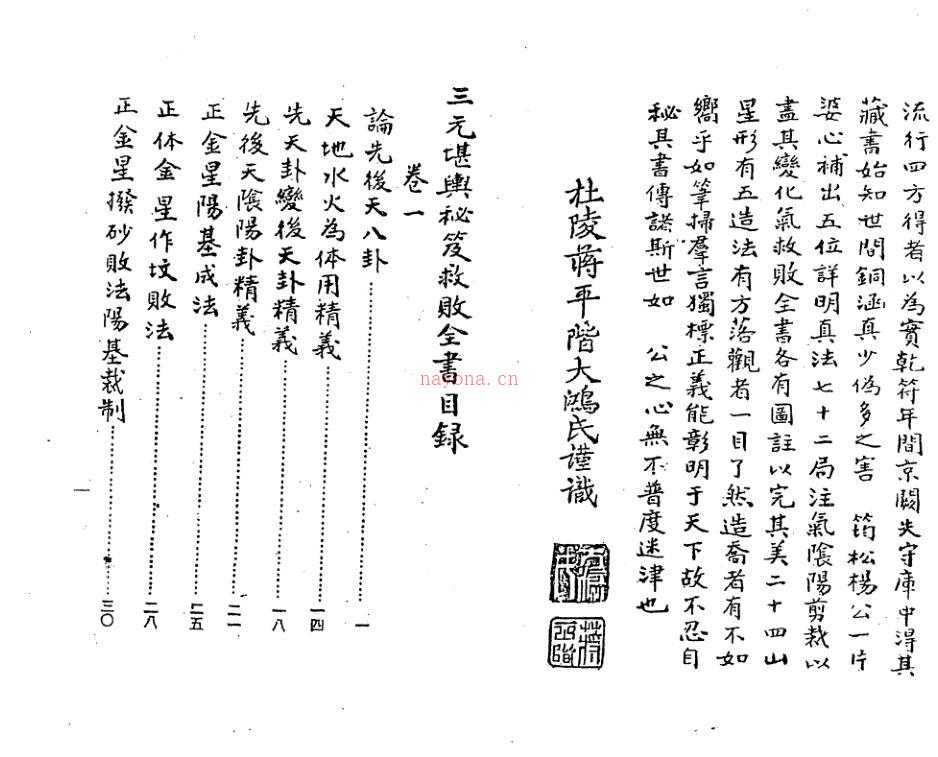 流行四方得者以為寳乾符年間京闕失守庫中得其
藏書始知世間銅函真少偽多之害 筠松楊公一片
婆心補出五位詳明真法七十二局注氣隂陽剪裁以
盡其變化氣救敗全書各有圖註以完其美二十四山
星形有五造法有方落觀者一目了然造喬者有不如
嚮乎如筆掃羣言獨標正義能彰明于天下故不忍自
秘其書傳諸斯世如 公之心無不普度迷津也
杜陵蔣平階大鴻氏謹識
三元堪輿秘笈救敗全書目録
卷一
論先後天八卦 一
天地水火為体用精義 一四
先天卦變後天卦精義 一八
先後天隂陽卦精義 二一
正金星陽基成法 二五
正体金星作坟敗法 二八
正金星撥砂敗法陽基裁制 三〇
一
nayona.cn